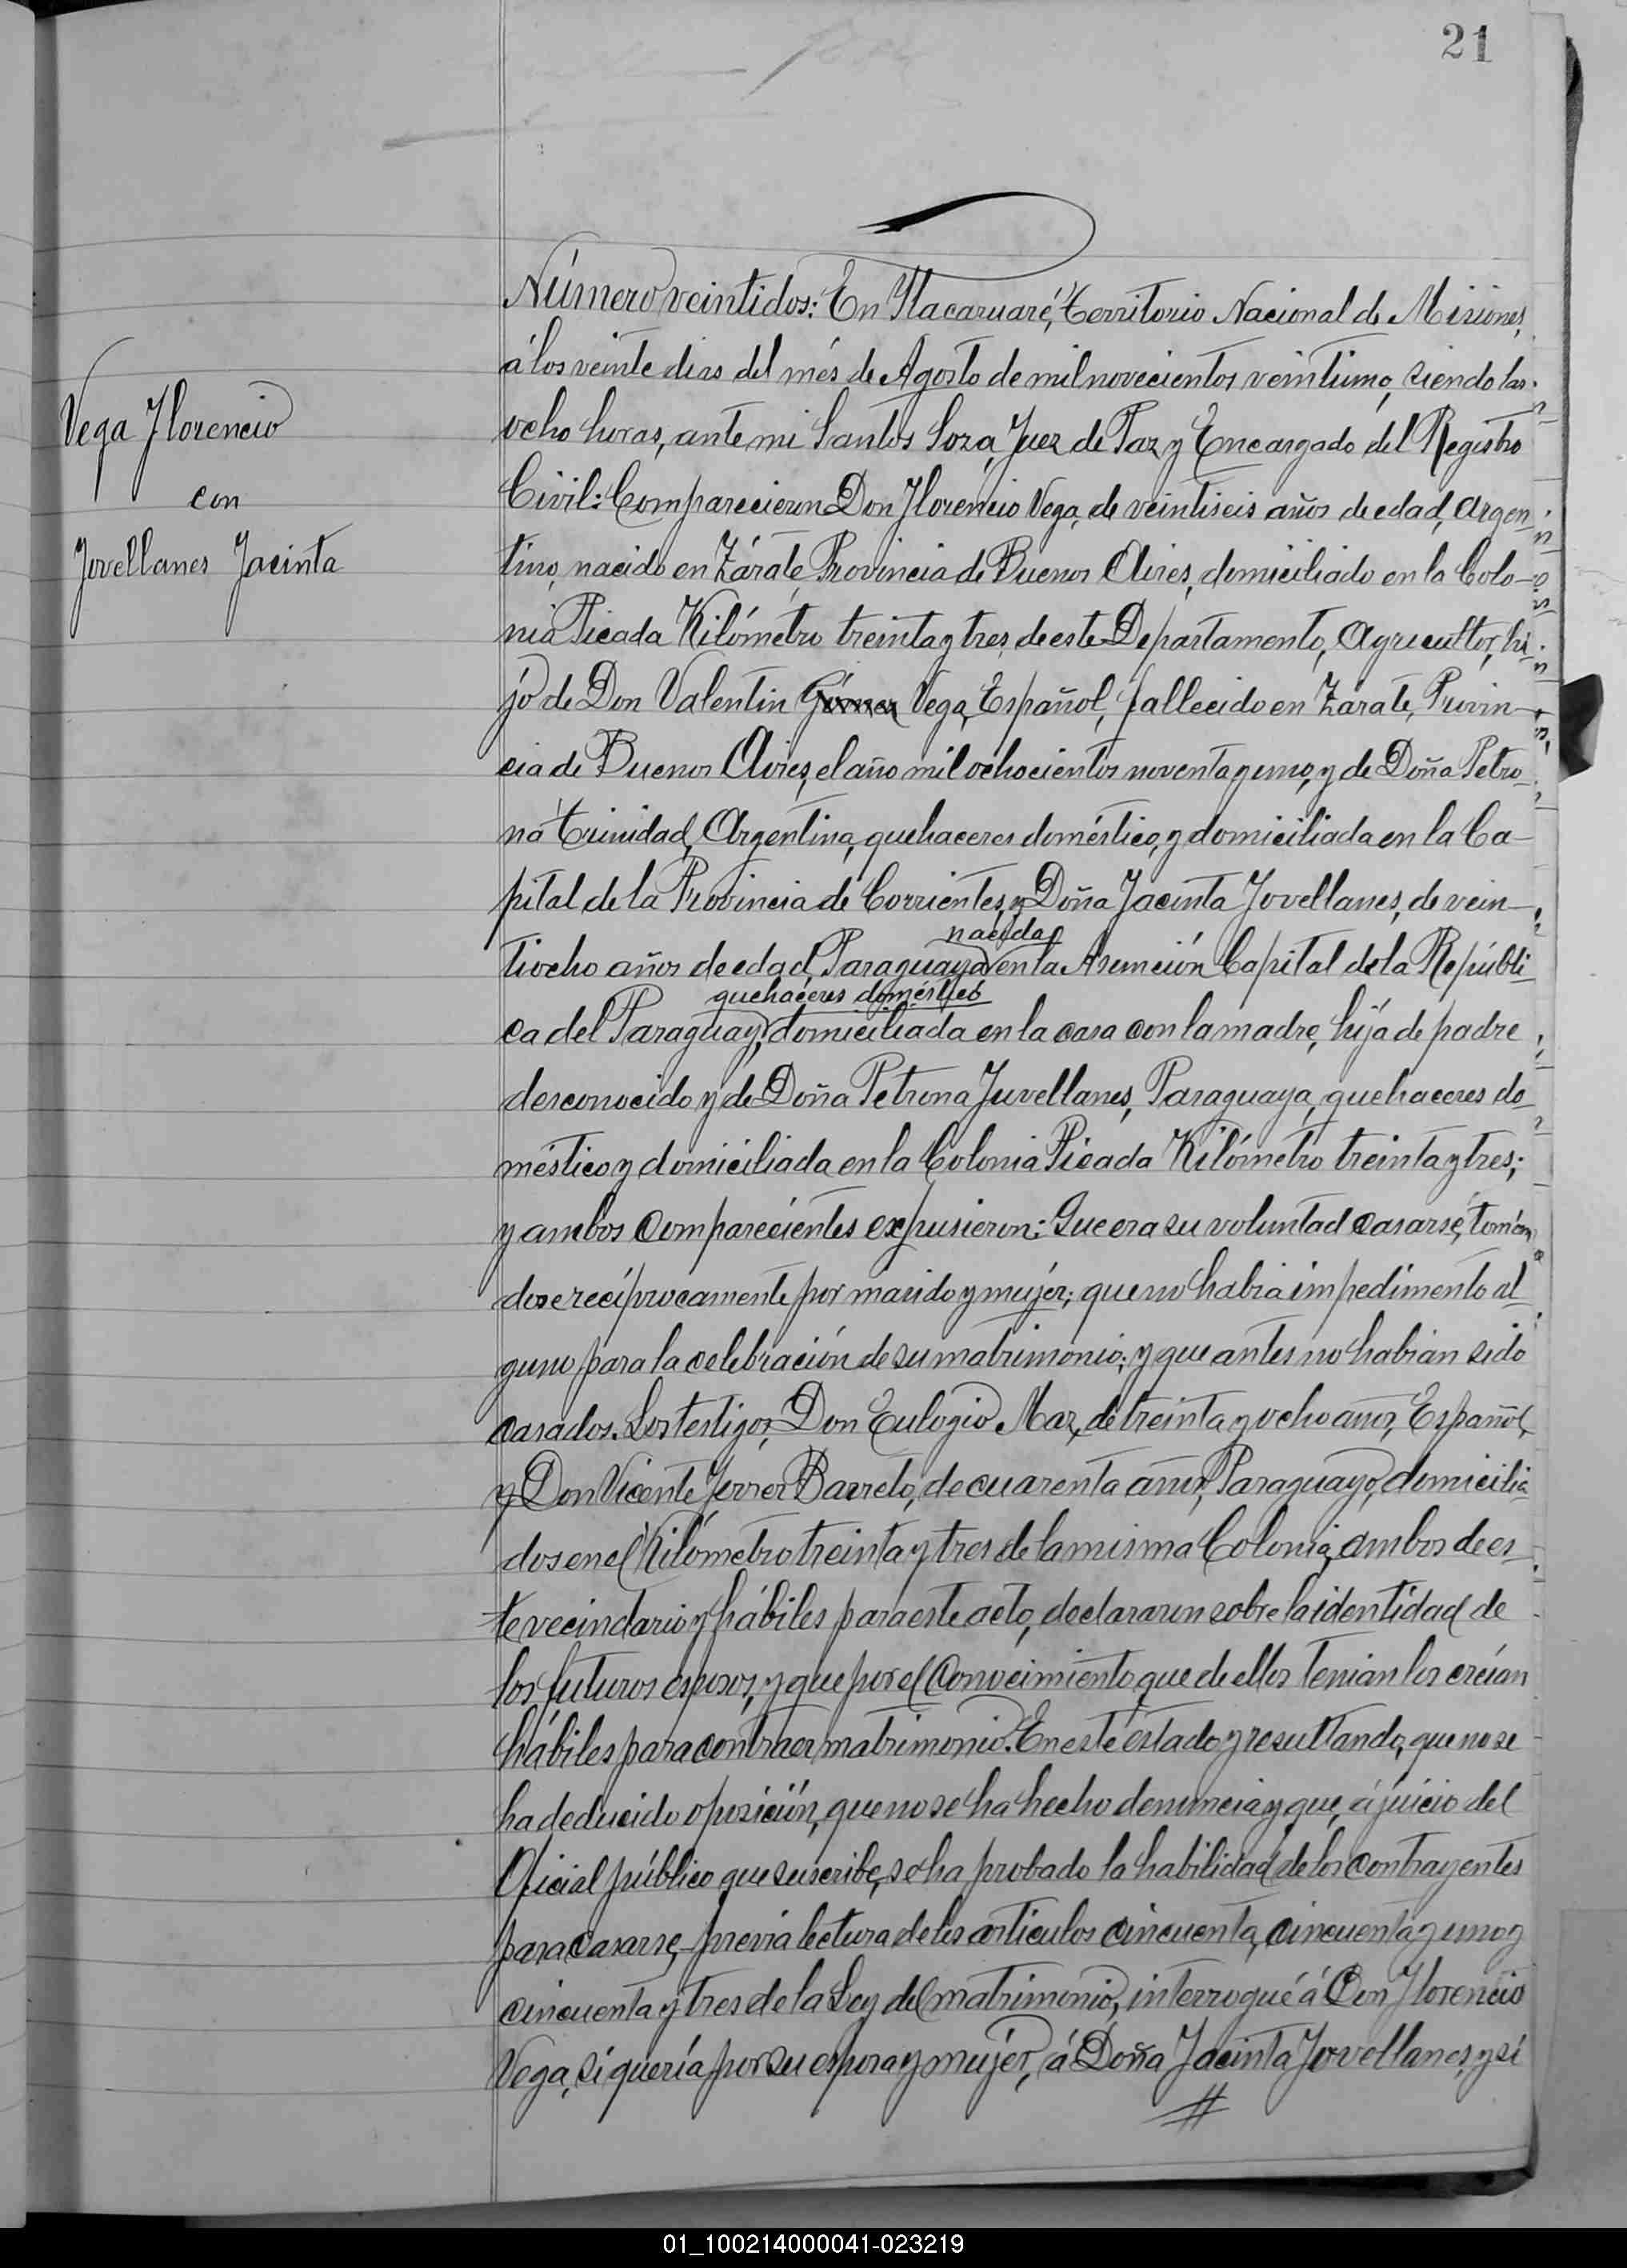 21
Vega Florencio
con
Jovellanes Jacinta
Número veintidos: En Itacaruaré, Territorio Nacional de Misiones,
á los veinte dias del més de Agosto de mil novecientos veintiuno, siendo las
ocho horas, ante mi Santos Soza, Juez de Paz y Encargado del Registro
Civil: Comparecieron Don Florencio Vega, de veintiseis años de edad, Argen-
tino, nacido en Zárate, Provincia de Buenos Aires, domiciliado en la Colo-
nia Picada Kilómetro treinta y tres, de este Departamento, Agricultor, hi-
jo de Don Valentin Gómez Vega, Español, fallecido en Zárate, Provin-
cia de Buenos Aires, el año mil ochocientos noventa y uno, y de Doña Petro-
na Trinidad, Argentina, quehaceres doméstico, y domiciliada en la Ca-
pital de la Provincia de Corrientes, y Doña Jacinta Jovellanes, de vein-
nacida
tiocho años de edad, Paraguaya en la Asunción Capital de la Repúbli-
quehaceres doméstico
ca del Paraguay, domiciliada en la casa con la madre, hija de padre
desconocido y de Doña Petrona Juvellanes, Paraguaya, quehaceres do-
méstico y domiciliada en la Colonia Picada Kilómetro treinta y tres;
y ambos comparecientes expusieron: Que era su voluntad casarse, tomán
dose recíprocamente por marido y mujer; que no habia impedimento al-
guno para la celebración de su matrimonio; y que antes no habian sido
casados. Los testigos, Don Eulogio Maz, de treinta y ocho años, Español,
y Don Vicente Ferrer Barreto, de cuarenta años, Paraguayo, domicilia-
dos en el Kilómetro treinta y tres de la misma Colonia, ambos de es-
te vecindario y hábiles para este acto, declararon sobre la identidad de
los futuros esposos, y que por el conocimiento que de ellos tenian los creían
hábiles para contraer matrimonio. En este estado y resultando, que no se
ha deducido oposición, que no se ha hecho denuncia y que, á juicio del
Oficial público que suscribe, se ha probado la habilidad de los contrayentes
para casarse, previa lectura de los articulos cincuenta, cincuenta y uno y
cincuenta y tres de la Ley del matrimonio, interrogué á Don Florencio
Vega, si quería por su esposa y mujer, á Doña Jacinta Jovellanes, y si
01_100214000041-023219